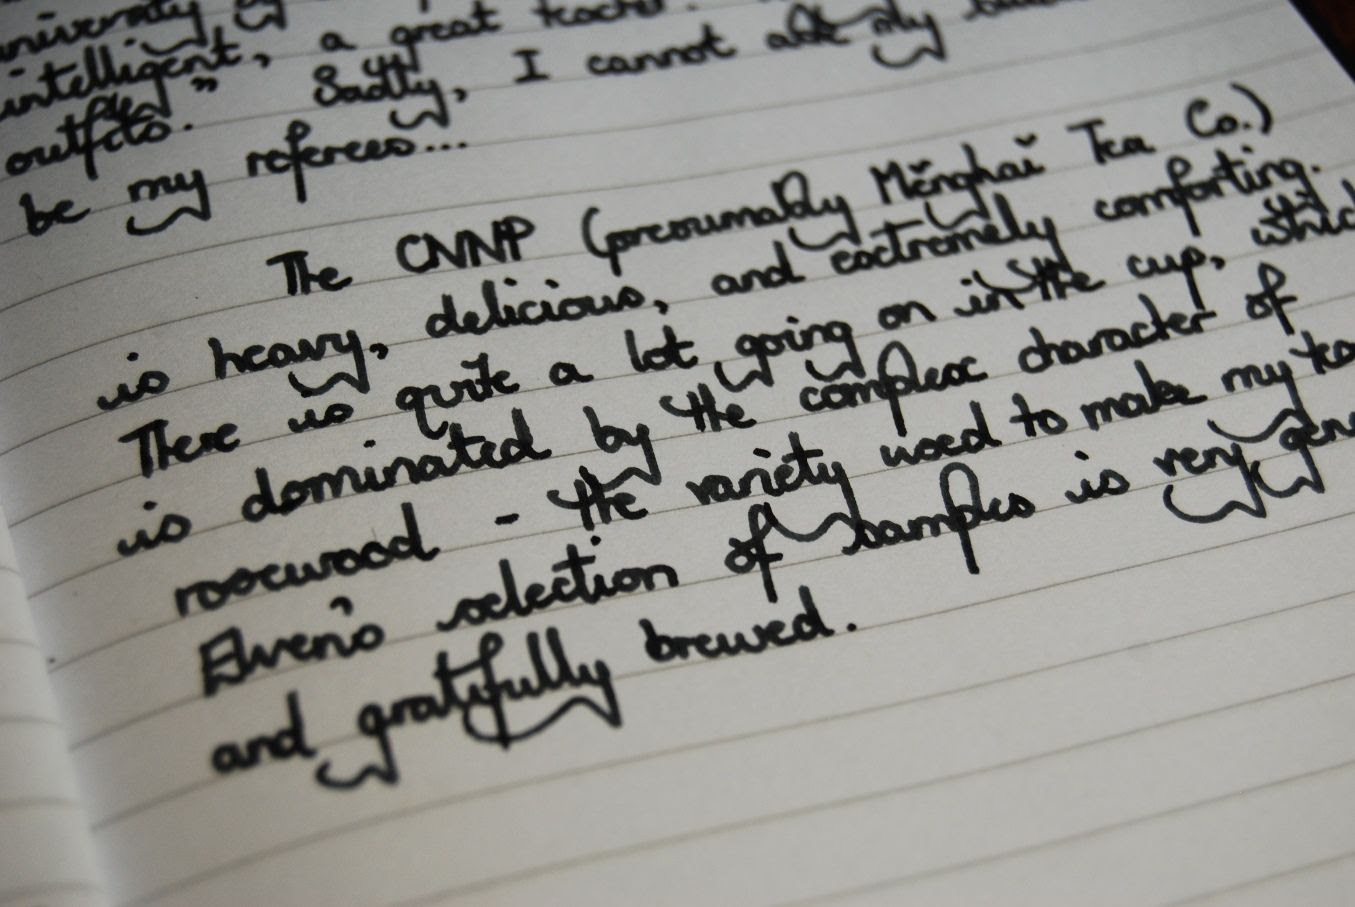 university
intelligent, a great teacher.
outfits." Sadly, I cannot ask my
be my referees...
The CNNP (presumably Měnghǎi Tea Co.)
is heavy, delicious, and extremely comforting.
There is quite a lot going on in the cup, which
is dominated by the complex character of
rosewood - the variety used to make my tea
Elven's selection of samples is very
and gratifully brewed.